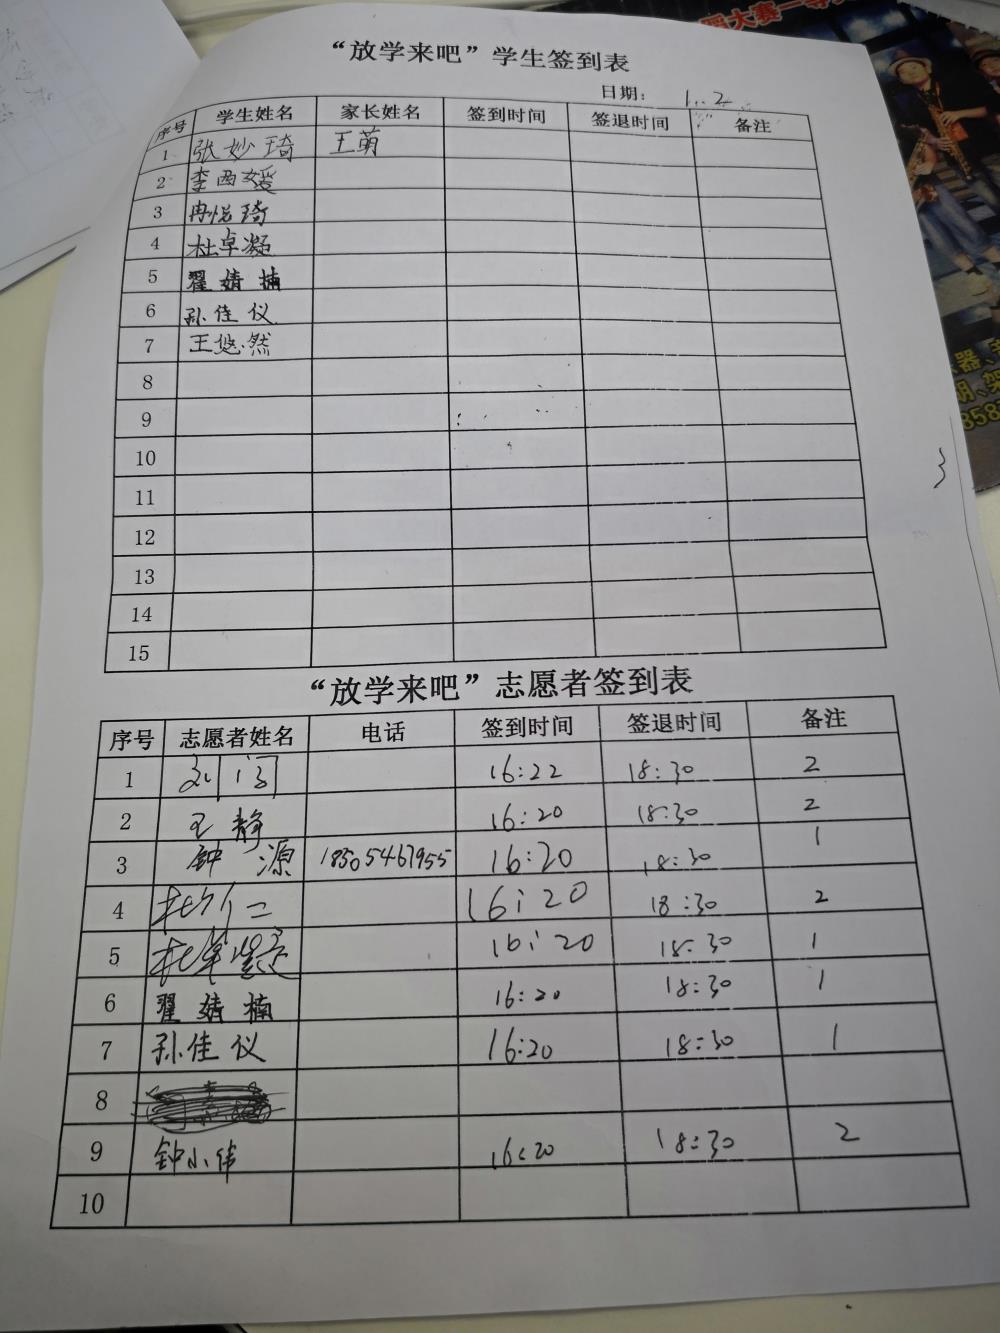 “放学来吧”学生签到表
日期： 1.2
序号 学生姓名 家长姓名 签到时间 签退时间 备注
1 张妙琦 王萌
2 李西媛
3 冉悦琦
4 杜卓凝
5 翟婧楠
6 孙佳仪
7 王悠然
8
9
10
11
12
13
14
15
“放学来吧”志愿者签到表
序号 志愿者姓名 电话 签到时间 签退时间 备注
1 16:22 18:30 2
2 王静 16:20 18:30 2
3 钟源 18505467955 16:20 18:30 1
4 16:20 18:30 2
5 杜卓凝 16:20 18:30 1
6 翟婧楠 16:20 18:30 1
7 孙佳仪 16:20 18:30 1
8
9 钟小伟 16:20 18:30 2
10
大赛一等